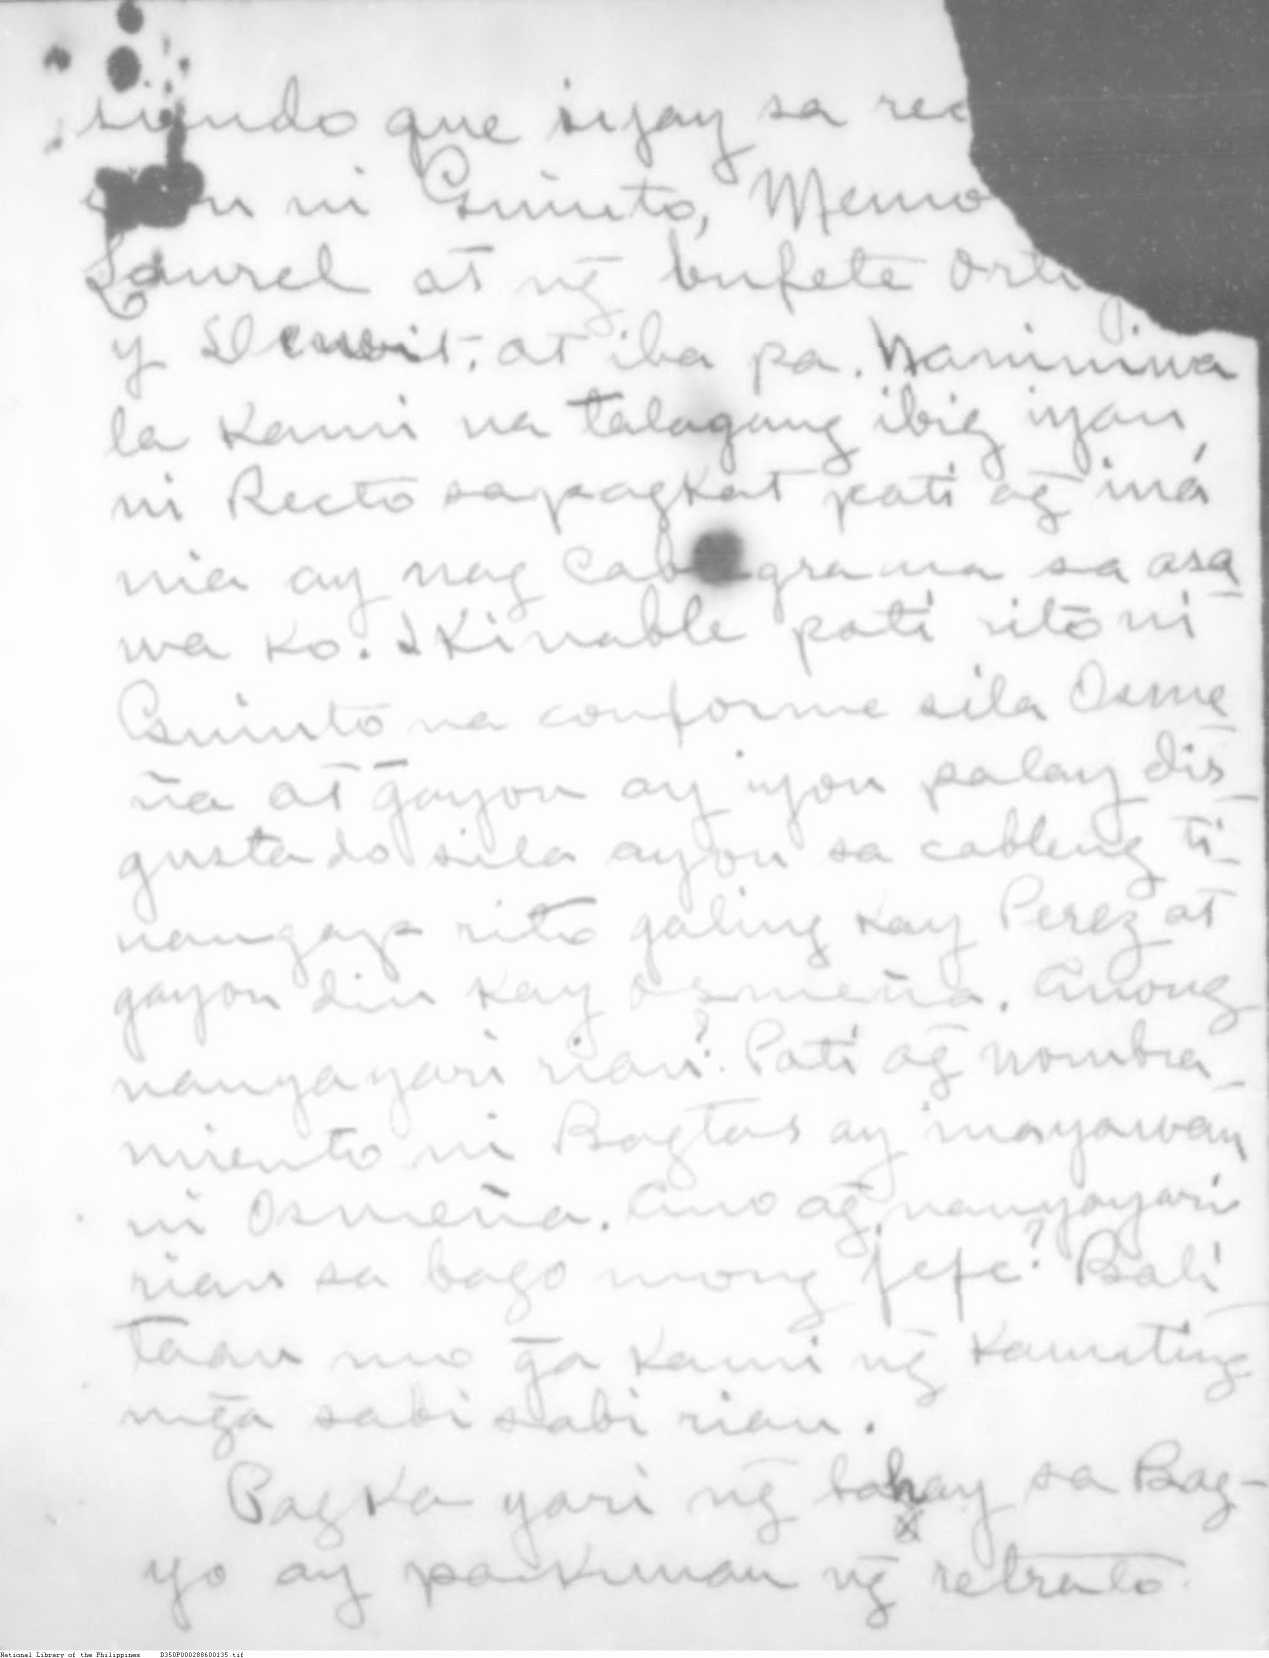 siendo que iyay sa rec
ni Guinto, Memo
Laurel at n͠g bufete Orti
y at iba pa. Naniniwa
la kami na talagang ibig iyan,
ni Recto sapagkat pati ag̃ iná
nia ay nag cablegrama sa asa
wa ko. Ikinable pati rito ni
Guinto na conforme sila Osme
ña at g̃ayon ay iyon palay dis_
gustado sila ayon sa cableng ti_
nangap rito galing kay Perez at
gayon din kay Osmeña. Anong
nangyayari rian? Pati ag̃ nombra_
miento ni Bagtas ay inayawan
ni Osmeña. Ano ag̃ nangyayari
rian sa bago mong jefe? Bali
taan mo g̃a kami n͠g kaunting
mg̃a sabi sabi rian.
Pagka yari n͠g bahay sa Bag-
yo ay paikunan n͠g retrato.
National Library of the Philippines D350P000288600135.tif